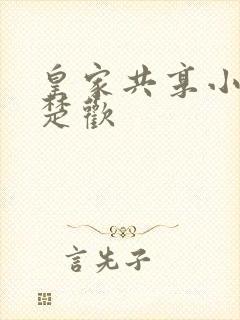 皇家共享小
楚歡
言先子